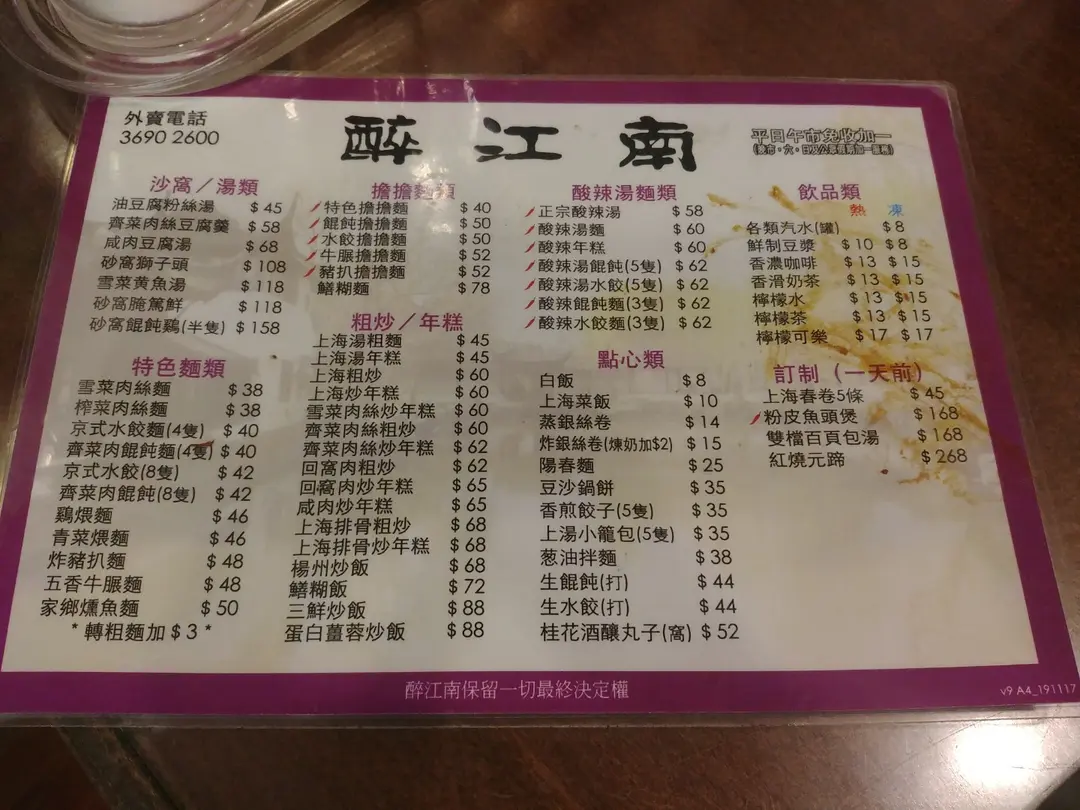 外賣電話
3690 2600
醉江南
平日午市免收加一
沙窩／湯類
油豆腐粉絲湯 $45
齊菜肉絲豆腐羹 $58
咸肉豆腐湯 $68
砂窩獅子頭 $108
雪菜黄魚湯 $118
砂窩腌篤鮮 $118
砂窩餛飩鷄(半隻) $158
特色麵類
雪菜肉絲麵 $38
榨菜肉絲麵 $38
京式水餃麵(4隻) $40
齊菜肉餛飩麵(4隻) $40
京式水餃(8隻) $42
齊菜肉餛飩(8隻) $42
鷄煨麵 $46
青菜煨麵 $46
炸豬扒麵 $48
五香牛𦟌麵 $48
家鄉燻魚麵 $50
*轉粗麵加$3*
擔擔麵類
特色擔擔麵 $40
餛飩擔擔麵 $50
水餃擔擔麵 $50
牛𦟌擔擔麵 $52
豬扒擔擔麵 $52
鱔糊麵 $78
粗炒／年糕
上海湯粗麵 $45
上海湯年糕 $45
上海粗炒 $60
上海炒年糕 $60
雪菜肉絲炒年糕 $60
齊菜肉絲粗炒 $60
齊菜肉絲炒年糕 $62
回窩肉粗炒 $62
回窩肉炒年糕 $65
咸肉炒年糕 $65
上海排骨粗炒 $68
上海排骨炒年糕 $68
楊州炒飯 $68
鱔糊飯 $72
三鮮炒飯 $88
蛋白薑蓉炒飯 $88
酸辣湯麵類
正宗酸辣湯 $58
酸辣湯麵 $60
酸辣年糕 $60
酸辣湯餛飩(5隻) $62
酸辣湯水餃(5隻) $62
酸辣餛飩麵(3隻) $62
酸辣水餃麵(3隻) $62
點心類
白飯 $8
上海菜飯 $10
蒸銀絲卷 $14
炸銀絲卷(煉奶加$2) $15
陽春麵 $25
豆沙鍋餅 $35
香煎餃子(5隻) $35
上湯小籠包(5隻) $35
葱油拌麵 $38
生餛飩(打) $44
生水餃(打) $44
桂花酒釀丸子(窩) $52
飲品類
熱 凍
各類汽水(罐) $8
鮮制豆漿 $10 $8
香濃咖啡 $13 $15
香滑奶茶 $13 $15
檸檬水 $13 $15
檸檬茶 $13 $15
檸檬可樂 $17 $17
訂制（一天前）
上海春卷5條 $45
粉皮魚頭煲 $168
雙檔百頁包湯 $168
紅燒元蹄 $268
醉江南保留一切最終決定權
v9 A4_191117